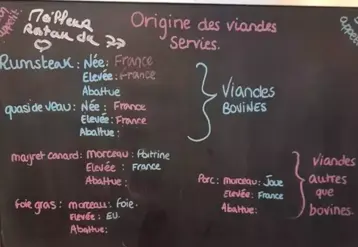 Meilleur
Origine des viandes
servies.
Rumsteak : Née : France
Elevée : France
Abattue
Viandes
BOVINES
quasi de veau : Née : France
Elevée : France
Abattue :
magret canard : morceau : Poitrine
Elevée : France
Abattue :
Porc : morceau : Joue
Elevée : France
Abattue :
viandes
autres
que
bovines.
foie gras : morceau : foie.
Elevée : EU.
Abattue :